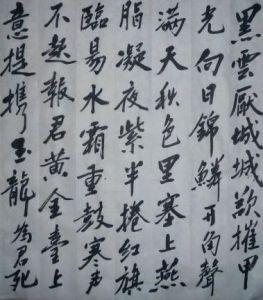 黑雲厭城城欲摧甲
光向日錦鱗开角聲
滿天秋色里塞上燕
脂凝夜紫半捲红旗
臨易水霜重鼓寒声
不起報君黄金臺上
意提攜玉龍為君死